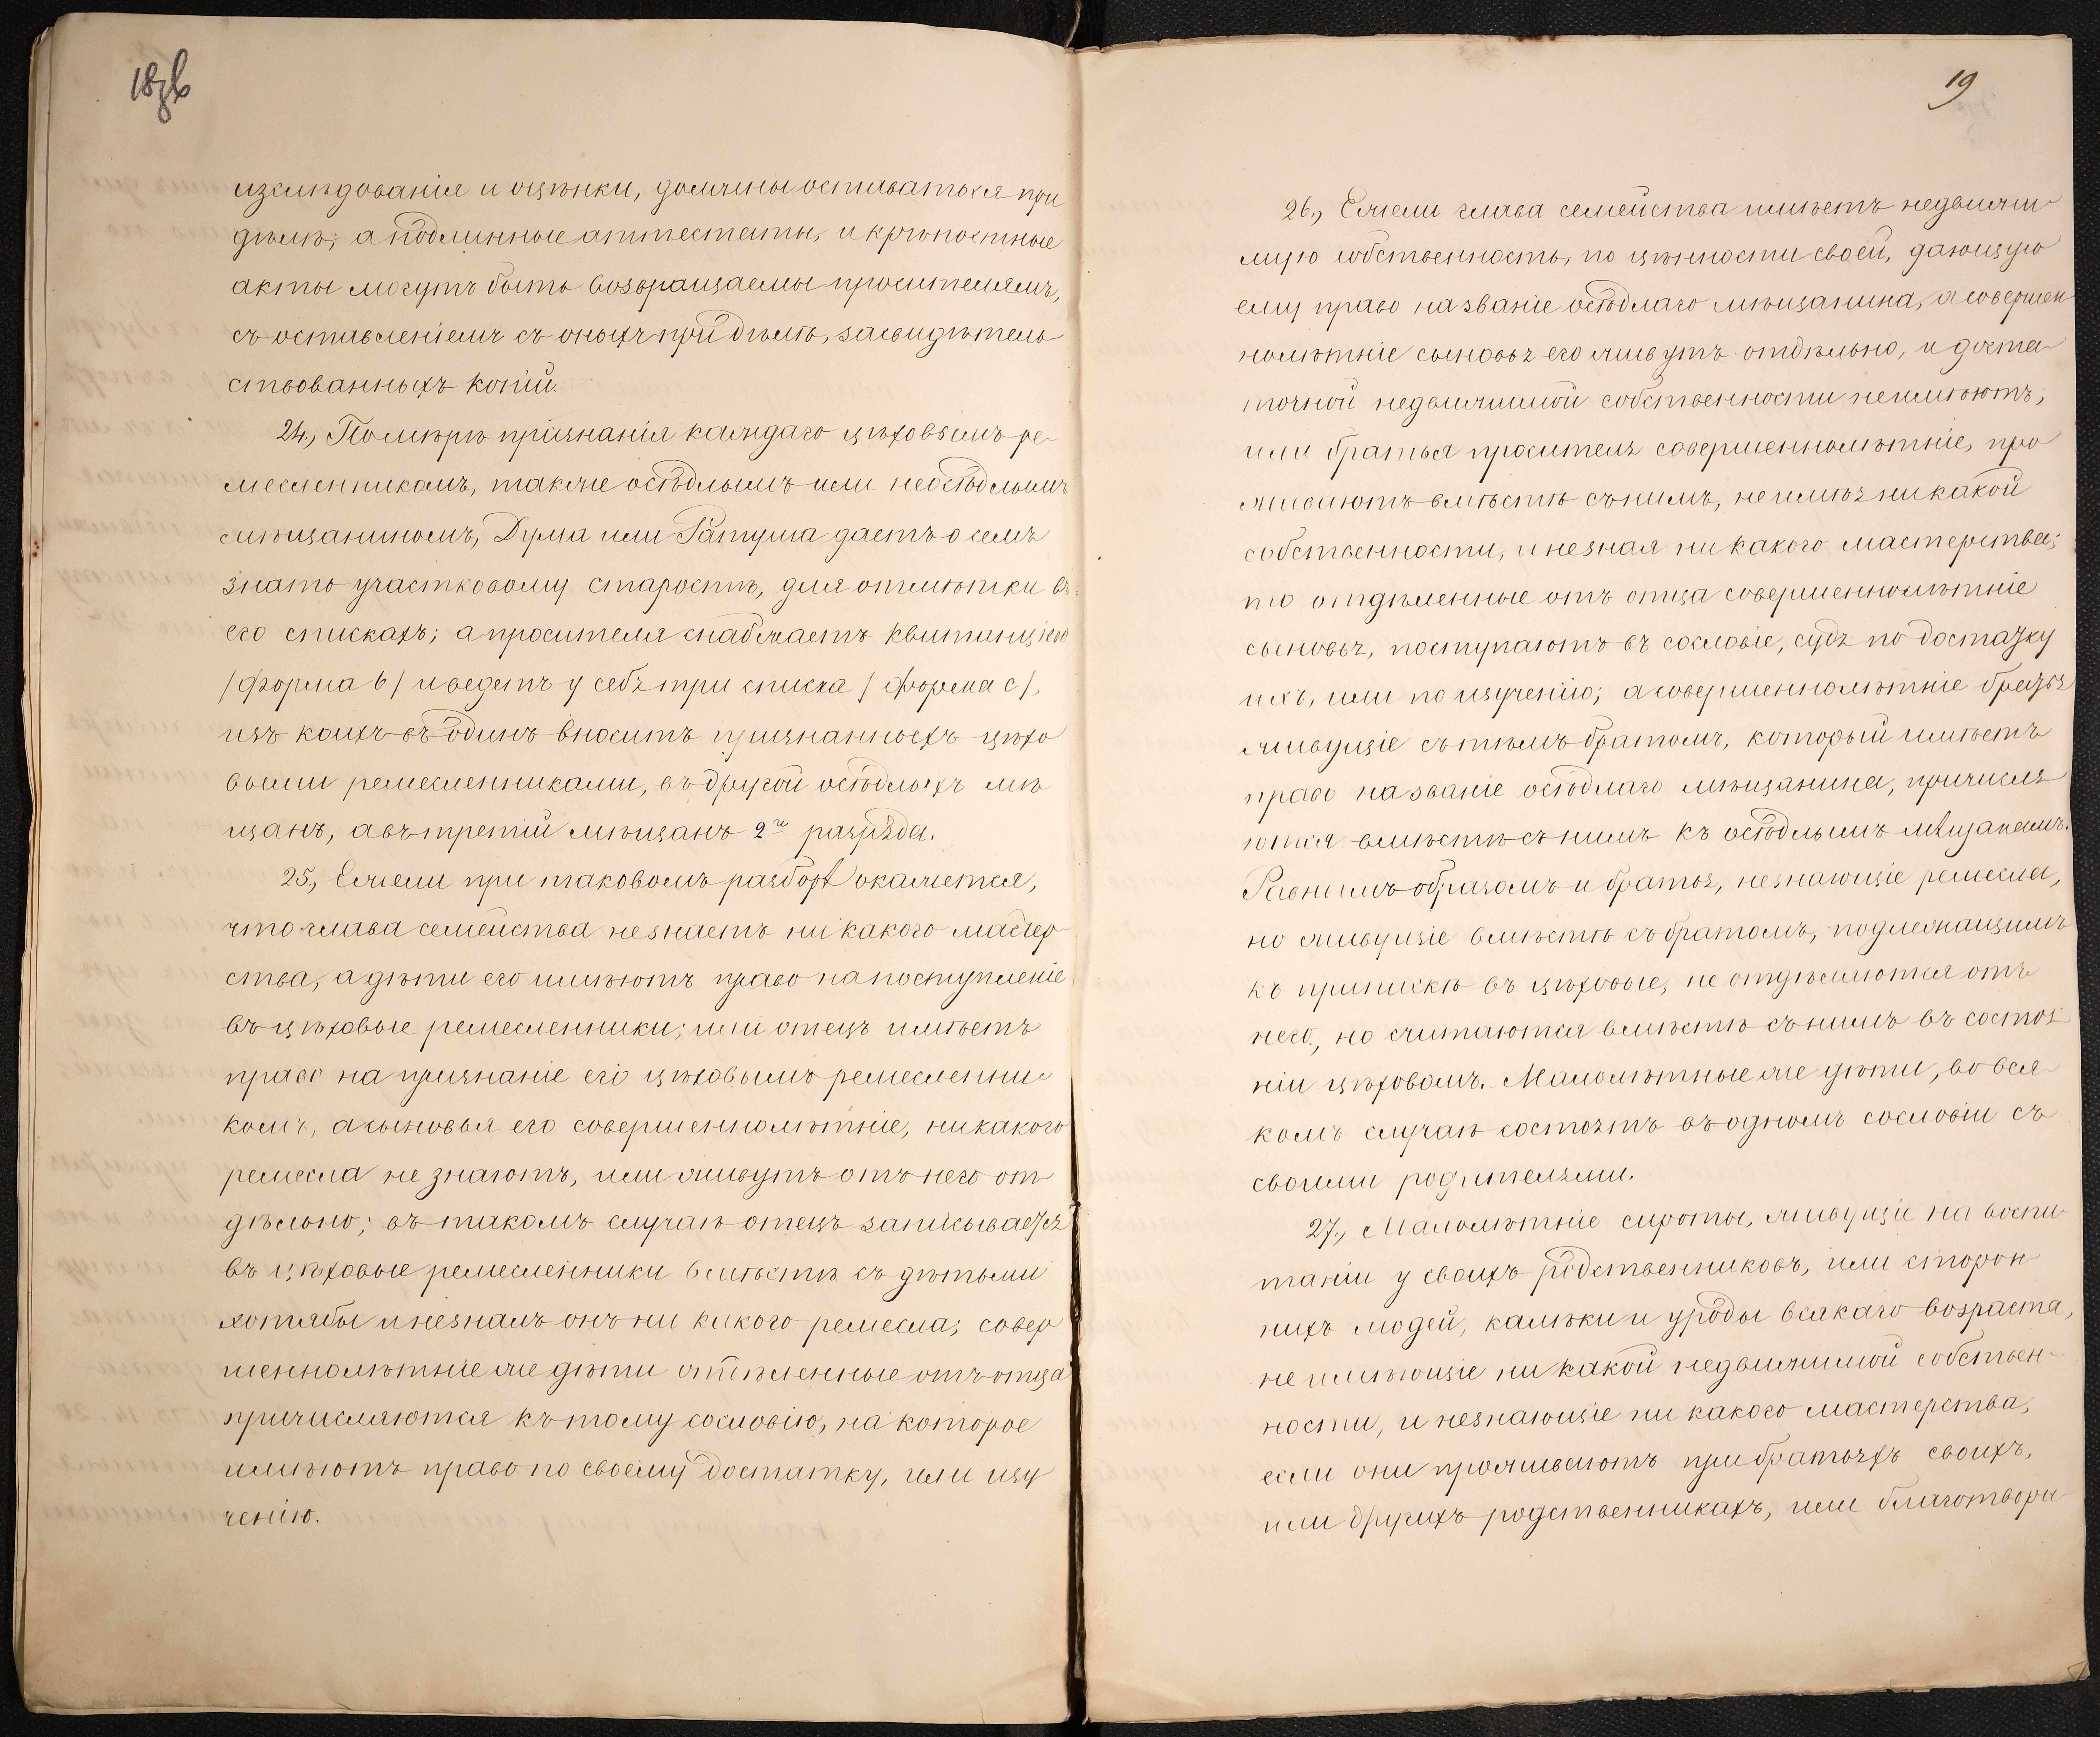 18зв
изслѣдованія и оцѣнки, должны оставаться при
дѣлѣ; а подлинные аттестаты, и крѣпостные
акты могутъ быть возвращаемы просителямъ,
съ оставленіемъ съ оныхъ при дѣлѣ, засвидѣтель
ствованныхъ копій.
24., По мѣрѣ признанія каждаго цѣховымъ ре-
месленникомъ, также осѣдлымъ или неосѣдлымъ
мѣщаниномъ, Дума или Ратуша даетъ о семъ
знать участковому старостѣ, для отмѣтки въ
его спискахъ; а просителя снабжаетъ квитанціею
/форма b/ и ведетъ у себя три списка /форма c/,
изъ коихъ въ одинъ вноситъ признанныхъ цѣхо
выми ремесленниками, въ другой осѣдлыхъ мѣ
щанъ, а въ третій мѣщанъ 2го разряда.
25., Ежели при таковомъ разборѣ окажется,
что глава семейства незнаетъ ни какого мастер
ства, а дѣти его имѣютъ право на поступленіе
въ цѣховые ремесленники; или отецъ имѣетъ
право на признаніе его цѣховымъ ремесленни-
комъ, а сыновья его совершеннолѣтніе, никакого
ремесла не знаютъ, или живутъ отъ него от
дѣльно; въ такомъ случаѣ отецъ записывается
въ цѣховые ремесленники вмѣстѣ съ дѣтьми
хотябы и незналъ онъ ни какого ремесла; совер
шеннолѣтніе же дѣти отдѣленные отъ отца
причисляются къ тому сословію, на которое
имѣютъ право по своему достатку, или изу
ченію.
19
26., Ежели глава семейства имѣетъ недвижи-
мую собственность, по цѣнности своей, дающую
ему право названіе осѣдлаго мѣщанина, а совершен
нолѣтніе сыновья его живутъ отдѣльно, и доста-
точной недвижимой собственности неимѣютъ;
или братья просителя совершеннолѣтніе, про
живаютъ вмѣстѣ съ нимъ, не имѣя ни какой
собственности, и незная ни какого мастерства;
то отдѣленные отъ отца совершеннолѣтніе
сыновья, поступаютъ въ сословіе, судя по достатку
ихъ, или по изученію; а совершеннолѣтніе братья
живущіе съ тѣмъ братомъ, который имѣетъ
право названіе осѣдлаго мѣщанина, причисля
ются вмѣстѣ съ нимъ къ осѣдлымъ мѣщанамъ.
Равнымъ образомъ и братья, незнающіе ремесла,
но живущіе вмѣстѣ съ братомъ, подлежащимъ
къ припискѣ въ цѣховые, не отдѣляются отъ
него, но считаются вмѣстѣ съ нимъ въ состоя
ніи цѣховомъ. Малолѣтные же дѣти, во вся-
комъ случаѣ состоятъ въ одномъ сословіи съ
своими родителями.
27., Малолѣтніе сироты, живущіе на воспи
таніи у своихъ родственниковъ, или сторон
нихъ людей, калѣки и уроды всякаго возраста,
не имѣющіе ни какой недвижимой собствен-
ности, и незнающіе ни какого мастерства,
если они проживаютъ при братьяхъ своихъ,
или другихъ родственникахъ, или благотвори